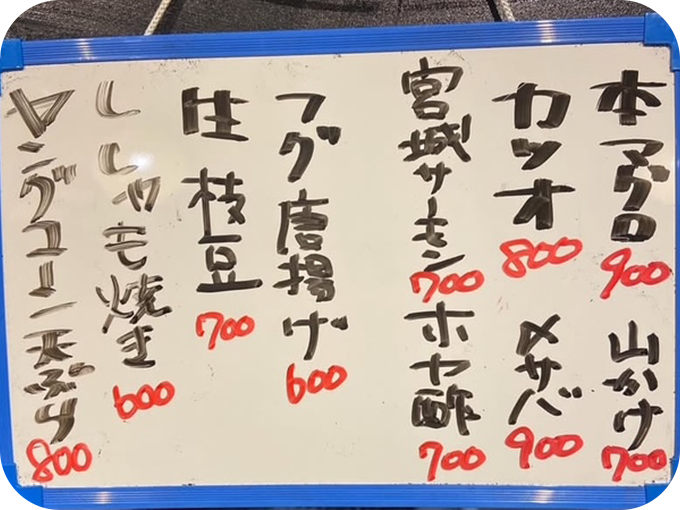 本マグロ
900
山かけ
700
カツオ
800
〆サバ
900
宮城サーモン
700
ホヤ酢
700
フグ唐揚げ
600
生枝豆
700
ししゃも焼き
600
ヤングコーン天ぷら
800